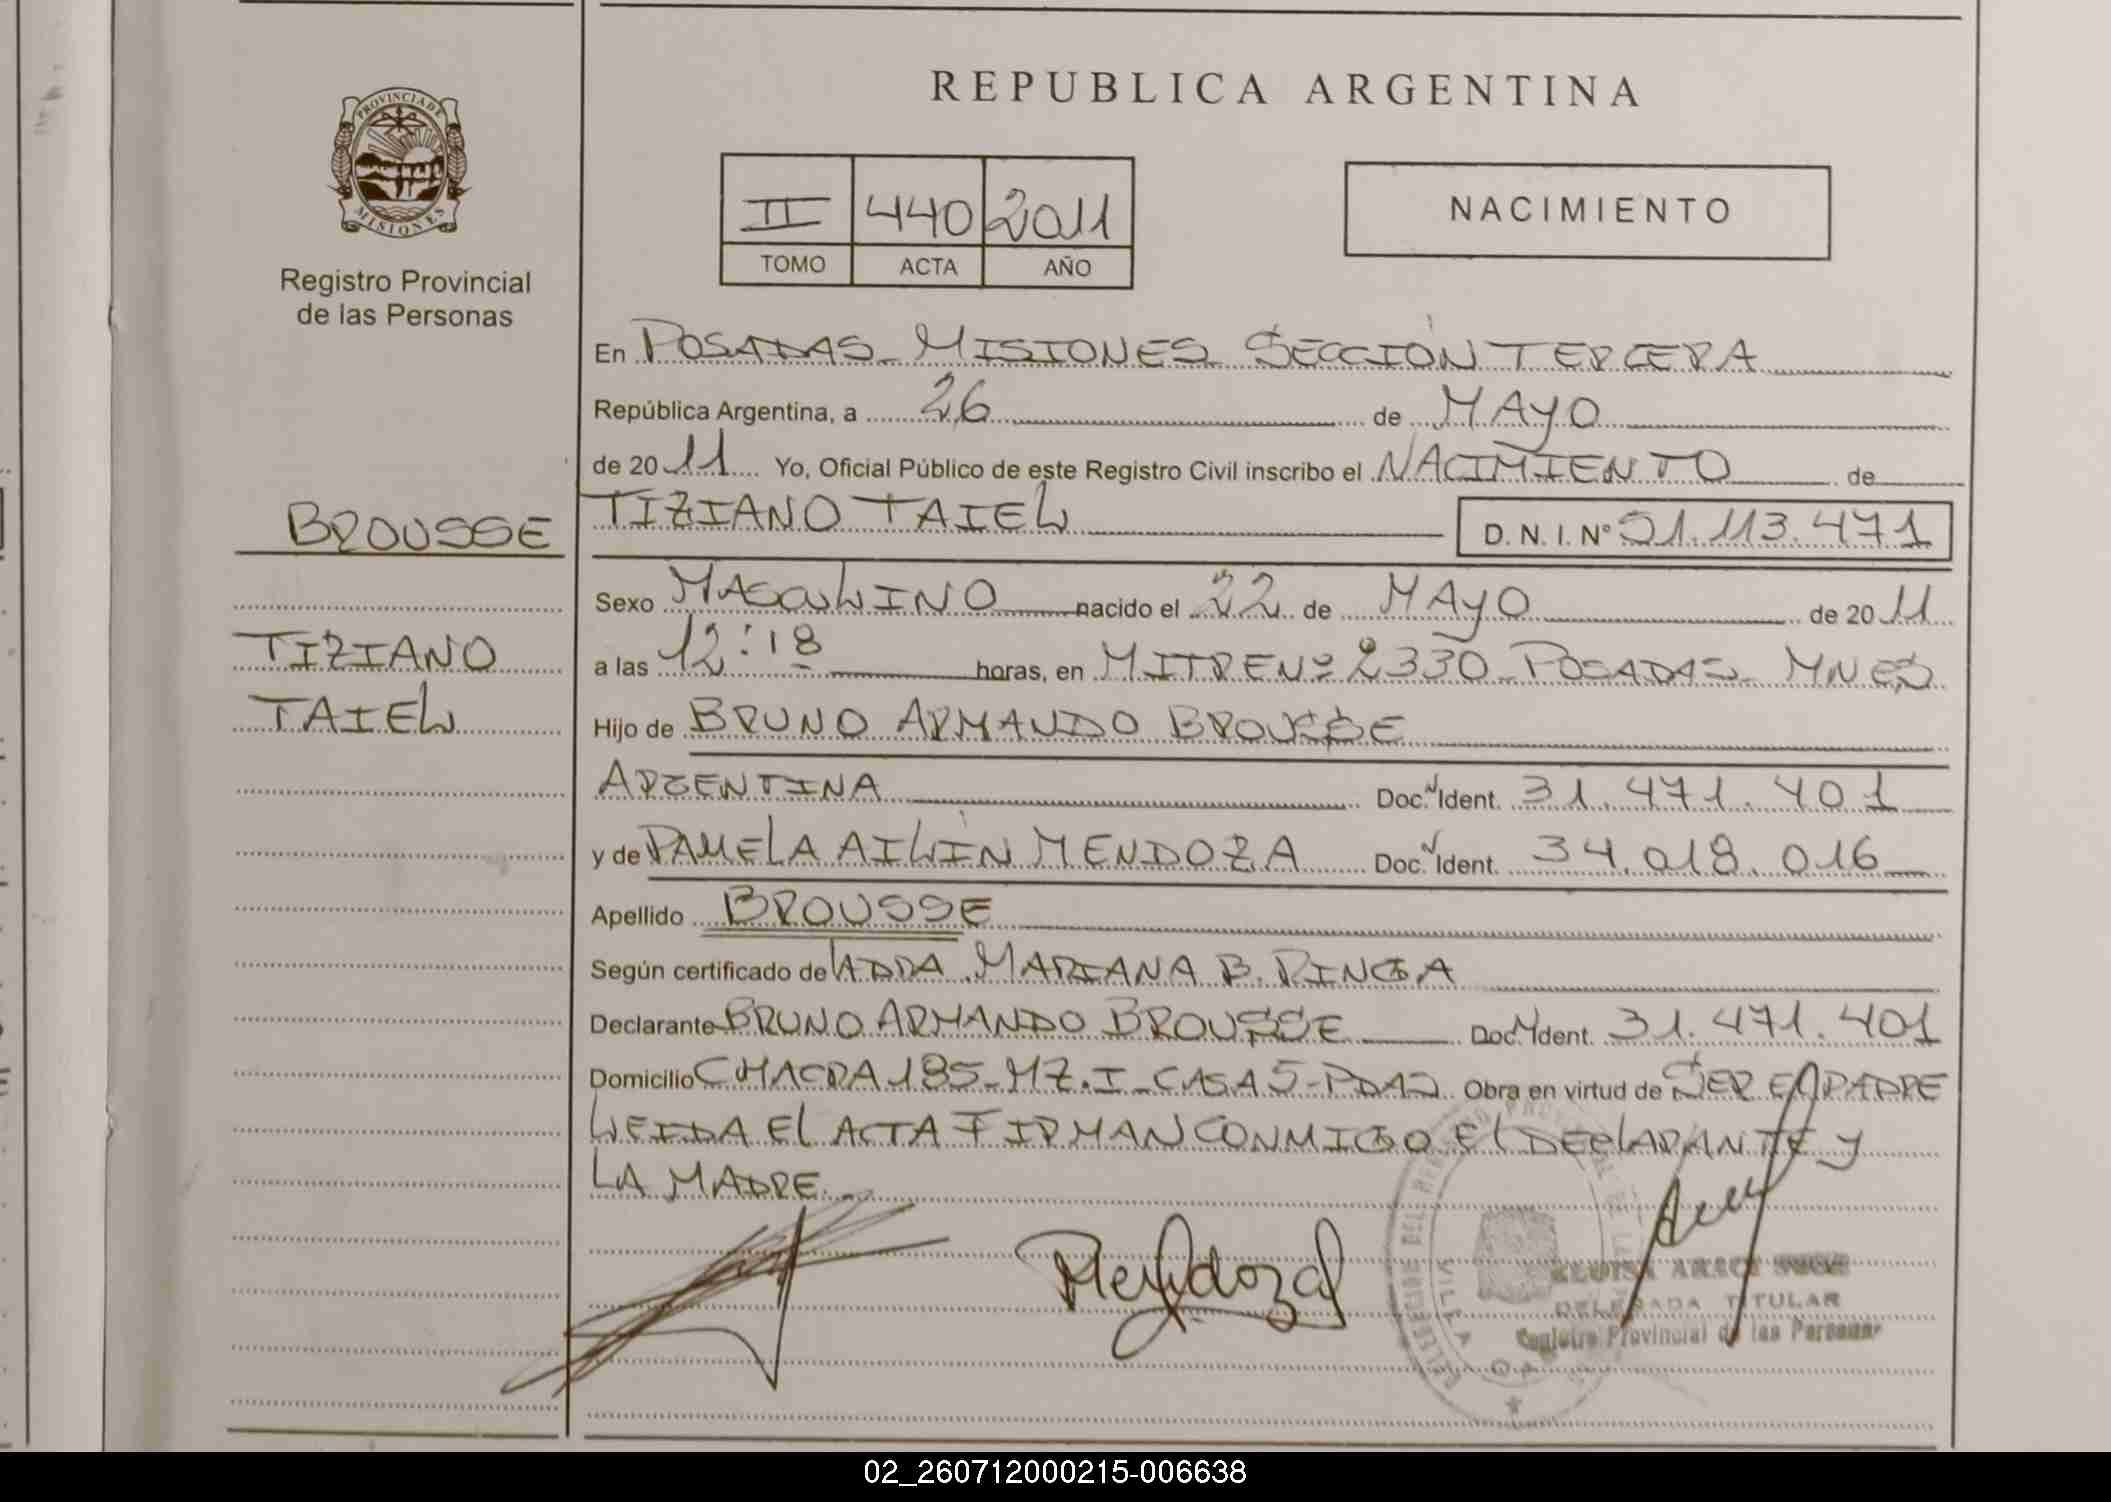 REPUBLICA ARGENTINA
PROVINCIA DE
MISIONES
Registro Provincial
de las Personas
II 440 2011
TOMO ACTA AÑO
NACIMIENTO
En POSADAS - MISIONES - SECCIÓN TERCERA
República Argentina, a 26 de MAYO
de 2011 Yo, Oficial Público de este Registro Civil inscribo el NACIMIENTO de
BROUSSE
TIZIANO TAIEL
TIZIANO TAIEL
D. N. I. Nº 51.113.471
Sexo MASCULINO nacido el 22 de MAYO de 2011
a las 12:18 horas, en MITRE Nº 2330 - POSADAS - MNES
Hijo de BRUNO ARMANDO BROUSSE
ARGENTINA Doc. N Ident. 31.471.401
y de PAMELA AILÍN MENDOZA Doc. N Ident. 34.018.016
Apellido BROUSSE
Según certificado de LA DRA. MARIANA B. RINGA
Declarante BRUNO ARMANDO BROUSSE Doc. N Ident. 31.471.401
Domicilio CHACRA 185 - MZ. I - CASA 5 - PDAS Obra en virtud de SER EL PADRE
LEIDA EL ACTA FIRMAN CONMIGO EL DECLARANTE Y
LA MADRE.
Mendoza
DELEGADA TITULAR
Registro Provincial de las Personas
02_260712000215-006638